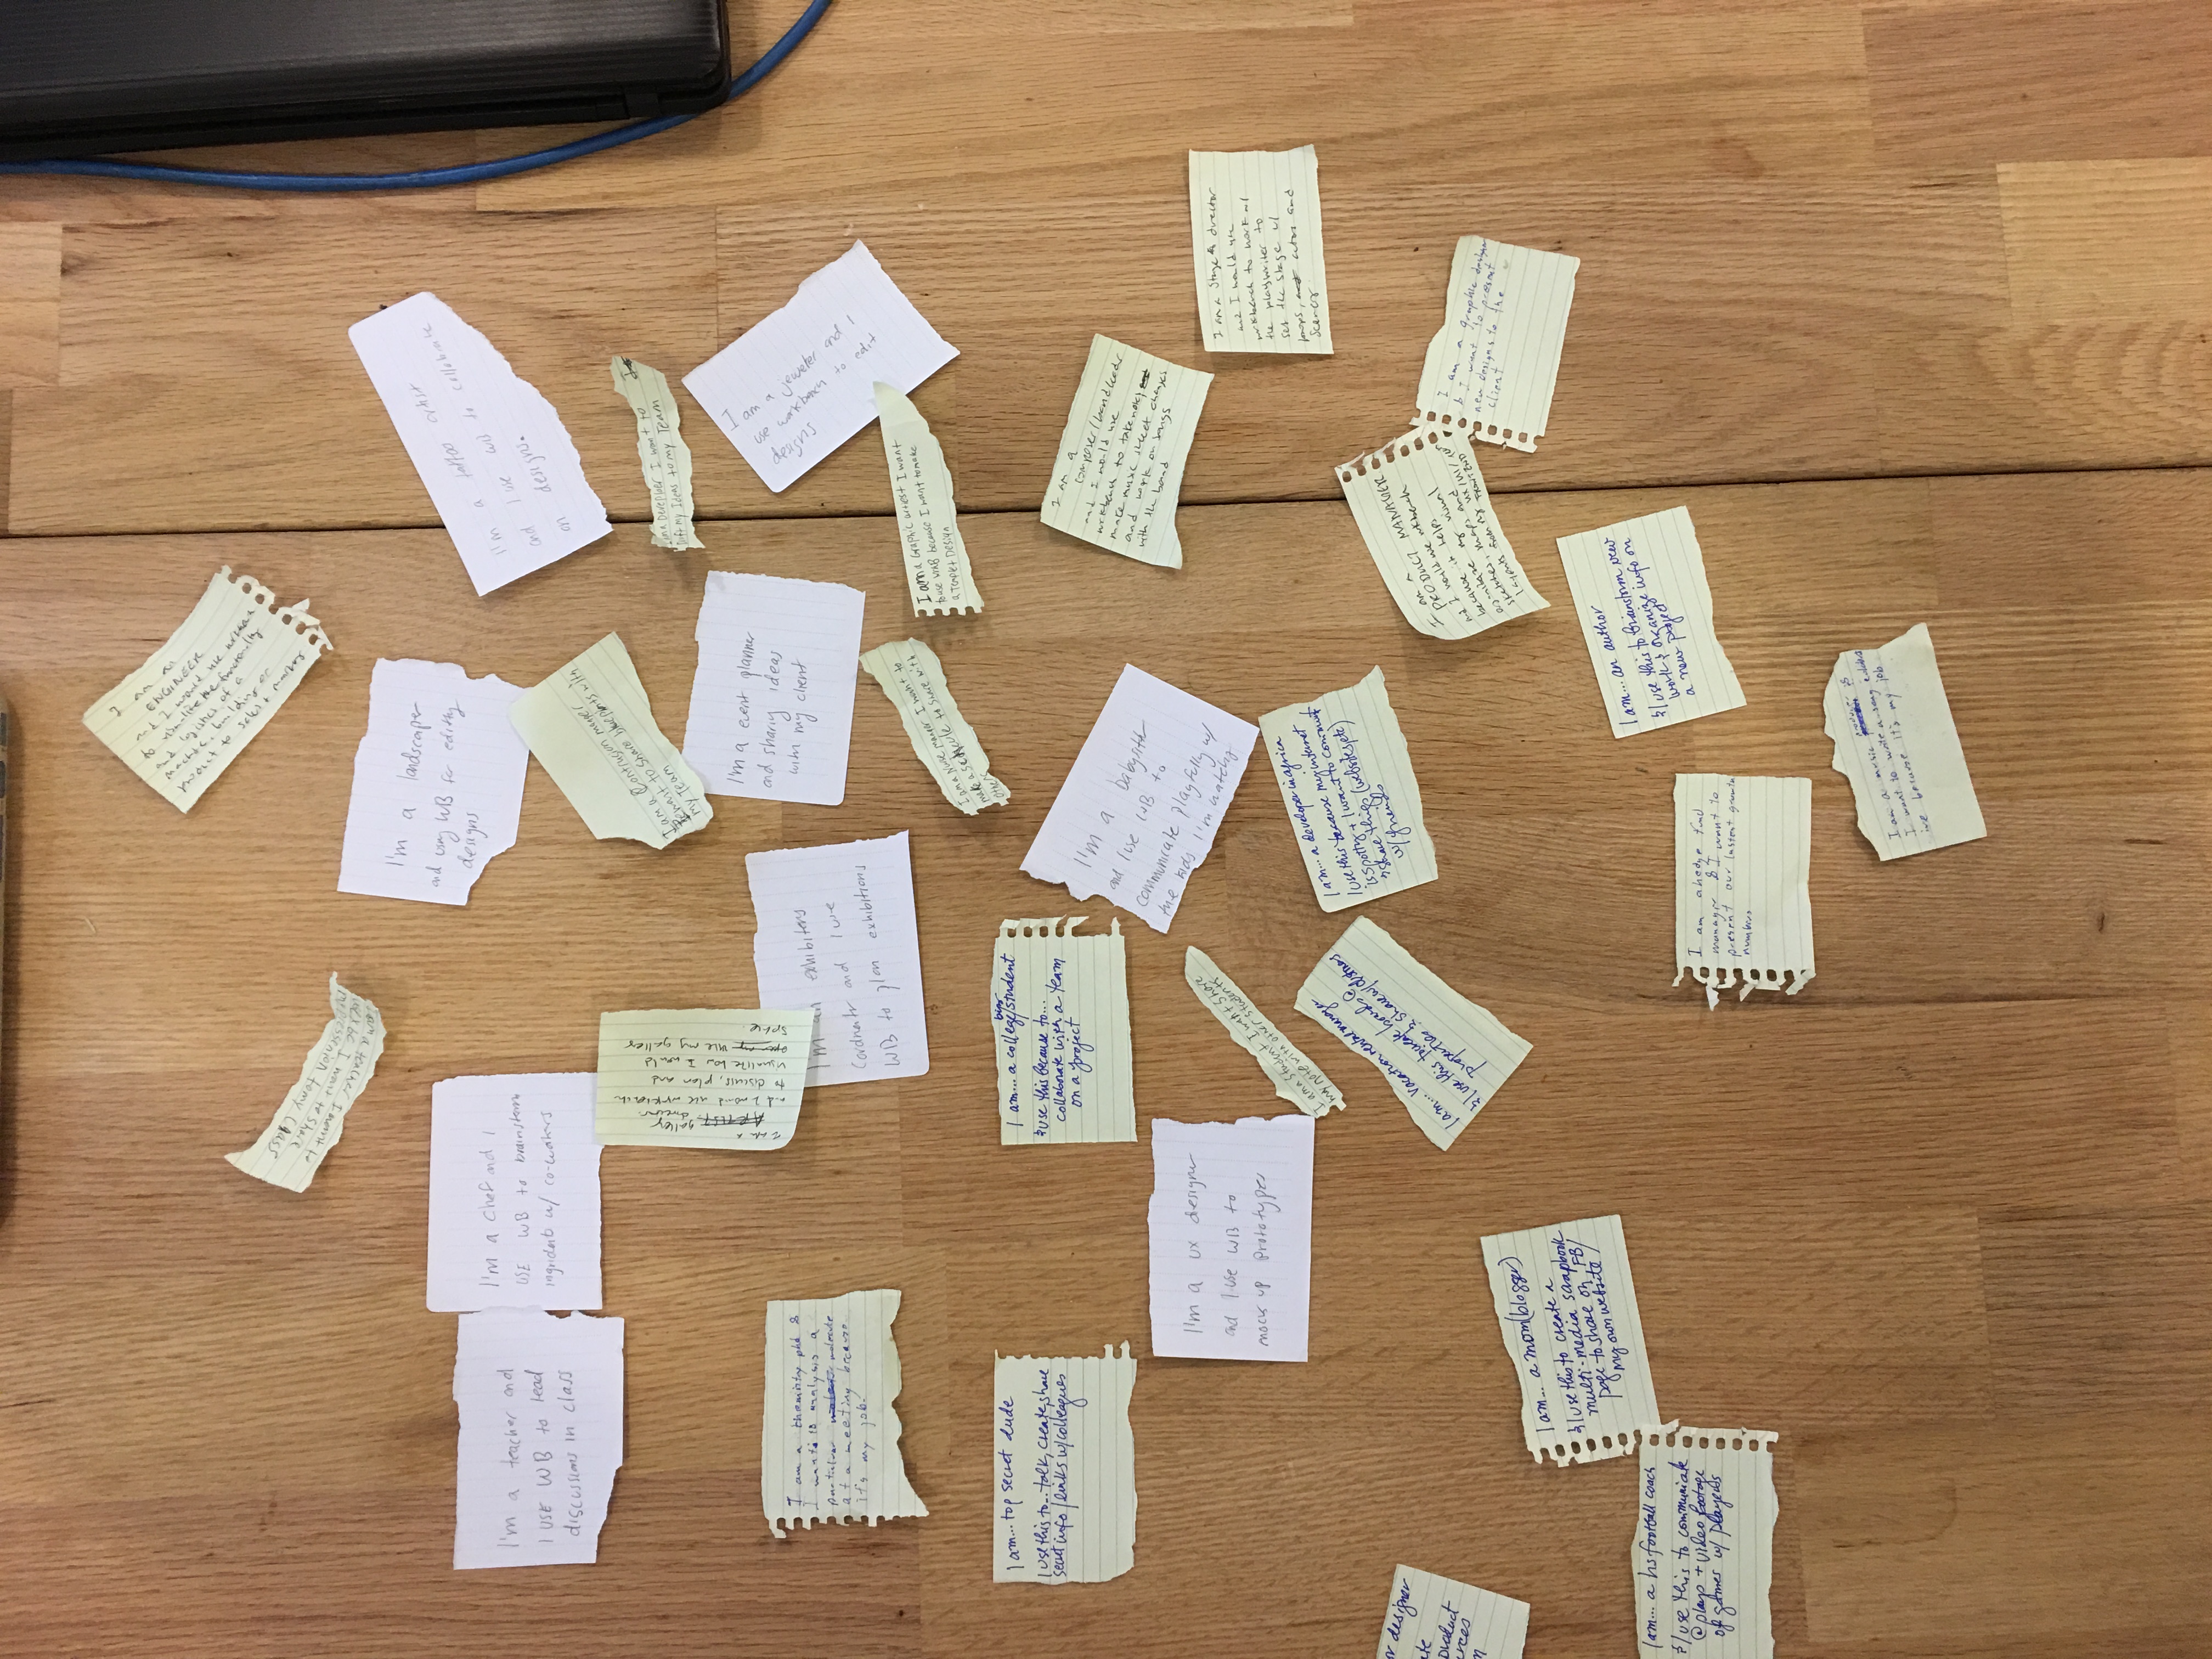 I am an
ENGINEER
and I would use workbench
to visualize the functionality
and logistics of a
machine, building or
product to sales + market
I am a teacher I want to
use
be I want to share
my lesson to my Class
I'm a landscaper
and using WB for editing
designs
I'm a tattoo artist
and I use WB to collabrate
on designs.
I'm a teacher and
I USE WB to lead
discussions in class
I'm a chef and I
USE WB to brainstorm
ingridents w/ co-workers
I am a Contrusion manger
I want to share blueprints with
My Team
I am a Develpber I want to
my Ideas to my Team
I am a
gallery
director
and I would use workbench
to discuss, plan and
visualize how I would
use my gallery
space
I'm a event planner
and sharing ideas
with my client
I am a jeweler and I
use workbench to edit
designs
I am a chemistry phd &
I wants to analysis a
particular molecule
at a meeting because
it's my job.
I'm an exhibiters
Cordinator and I use
WB to plan exhibitions
I am a Nurse manger I want to
make a schedule to share with
others
I am a Graphic artest I want
to use WRB because I want to make
a Templet Design
I am... top secret dude
I use this to... talk, create, share
secret info / links w/ colleagues
I am... a college/busy student
& use this because to...
collaborate with a team
on a project
I'm a babysitter
and I use WB to
communicate playfully w/
the kids I'm watching
I am a
composer/bandleader
and I would use
workbench to take notes
make music sheet changes
and work on songs
with the band
I'm a UX designer
and I use WB to
mock up prototypes
I am a Student I want share
my note with other students
I am a Stage director
and I would use
workbench to work w/
the playwriter to
set the stage w/
props, actors and
scenery
I am... a developer in africa
I use this because my internet
is spotty + I want to communicate
& share things (websites, etc)
w/ friends
I am... vacation rental manager
& I use this to create boards @
properties & share w/ customers
I am a
PRODUCT MANAGER
and I would use workbench
because it helps
organize my visual
sketches, maps and
layouts from my UX/UI/
FRONTEND team
I am a graphic designer
& I want to present
new designs to the
client
or designer
ate
product
urces
m
I am... a mom (blogger)
& I use this to create a
multi-media scrapbook
page to share on FB/
my own website/
I am... a hs football coach
& I use this to communicate
@ plays + video footage
of games w/ players
I am... an author
& I use this to brainstorm new
work & organize info on
a new project
I am a hedge fund
manager & I want to
present our lastest growth
numbers
I am a music producer &
I want to write a song
live because it's my job